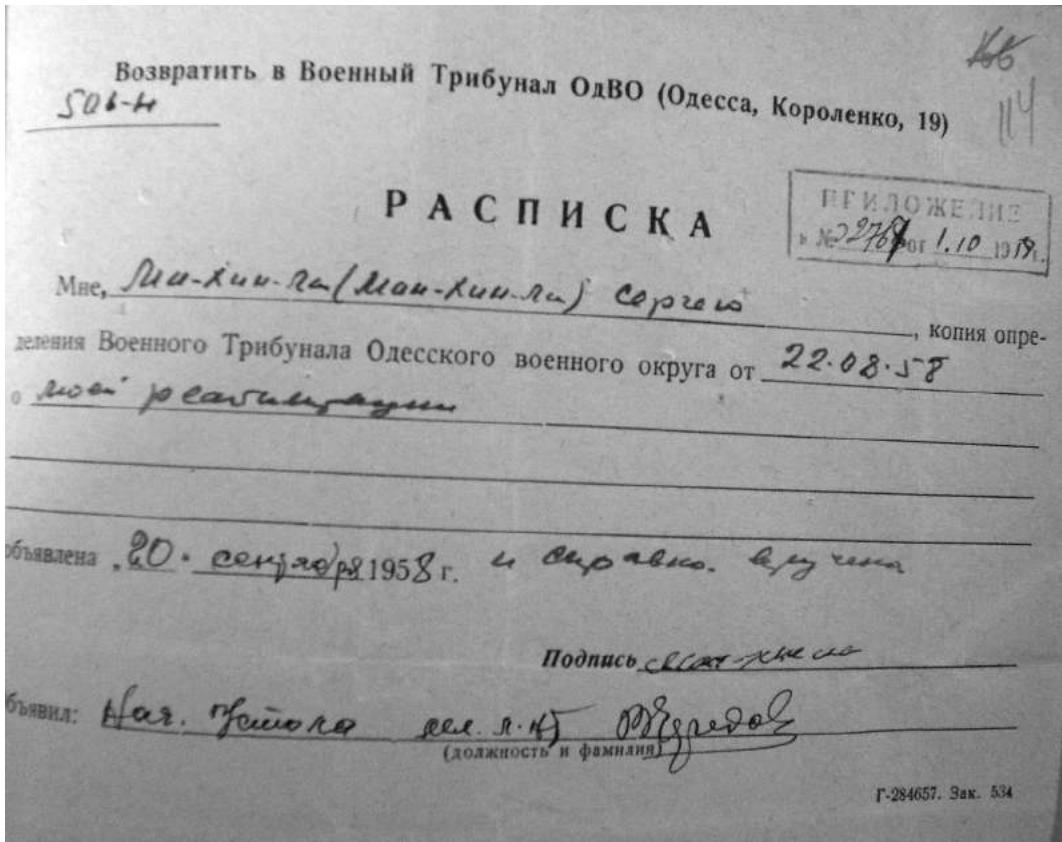 Возвратить в Военный Трибунал ОдВО (Одесса, Короленко, 19)
114
506-н
РАСПИСКА
ПРИЛОЖЕНИЕ
к № от 1.10 19 г.
Мне, Ли-Хин-Ли (Ман-Хин-Ли) Сергею, копия опре-
деления Военного Трибунала Одесского военного округа от 22.08.58
о моей реабилитации
объявлена „20. сентября 1958 г. и справка. вручена
Подпись
объявил: Нач.
(должность и фамилия)
Г-284657. Зак. 534